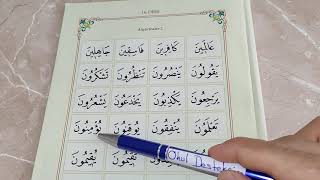 عَالَمِينَ كَافِرِينَ فَاسِقِينَ جَاهِلِينَ
يَقُولُونَ يَنْصُرُونَ تَنْظُرُونَ تَشْكُرُونَ
يَرْجِعُونَ يَكْذِبُونَ يَخْدَعُونَ يَشْعُرُونَ
تَعْلَمُونَ يُنْفِقُونَ يُوقِنُونَ يُؤْمِنُونَ
يُقِيمُونَ تُقِيمُونَ
Okul Destek